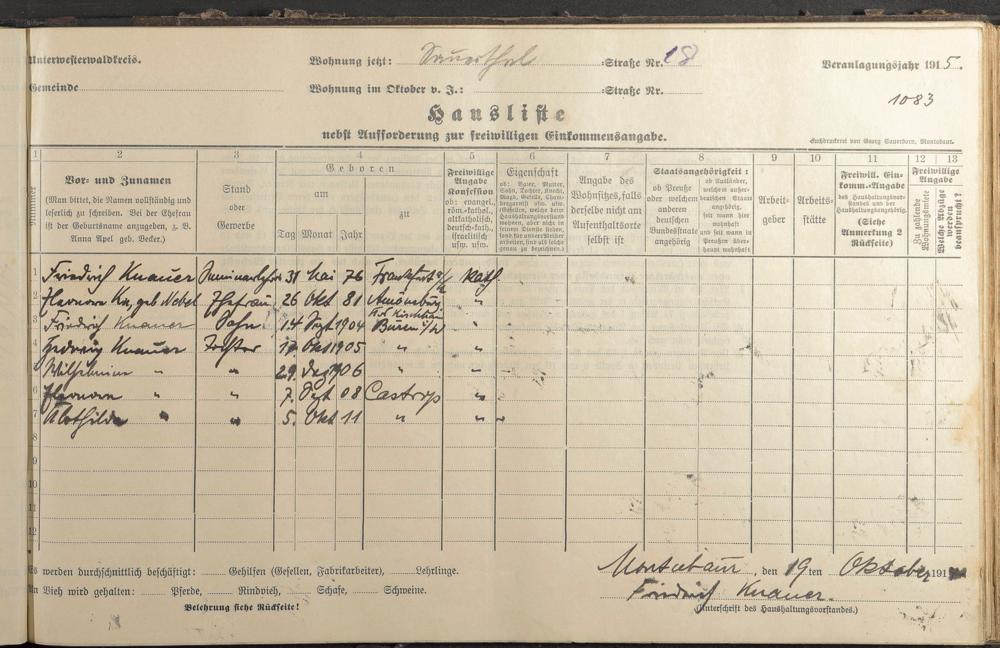 Unterwesterwaldkreis.
Wohnung jetzt: Sauerthal -Straße Nr. 18
Veranlagungsjahr 1915.
Gemeinde
Wohnung im Oktober v. J.: -Straße Nr.
1083
Hausliste
nebst Aufforderung zur freiwilligen Einkommensangabe.
Buchdruckerei von Georg Sauerborn, Montabaur.
1 2 3 4 5 6 7 8 9 10 11 12 13
Nummer
Vor- und Zunamen
(Man bittet, die Namen vollständig und
leserlich zu schreiben. Bei der Ehefrau
ist der Geburtsname anzugeben, z. B.
Anna Apel geb. Becker.)
Stand
oder
Gewerbe
Geboren
am
Tag Monat Jahr
zu
Freiwillige
Angabe
Konfession
ob: evangel.,
röm.-kathol.,
altkatholisch,
deutsch-kath.,
israelitisch
usw. usw.
Eigenschaft
Angabe des
Wohnsitzes, falls
derselbe nicht am
Aufenthaltsorte
selbst ist
Staatsangehörigkeit:
ob Preuße
oder welchem
anderen
deutschen
Bundesstaate
angehörig
ob Ausländer,
welchem außer-
deutschen Staate
angehörig,
seit wann hier
wohnhaft
und seit wann in
Preußen über-
haupt wohnhaft
Arbeit-
geber
Arbeits-
stätte
Freiwill. Ein-
komm.-Angabe
des Haushaltungsvor-
standes und der
Haushaltungsangehörig.
(Siehe
Anmerkung 2
Rückseite)
Freiwillige
Angabe
Zu zahlende
Wohnungsmiete
Welche Abzüge
werden
beansprucht?
1 Friedrich Knauer Seminarlehrer 31 Mai 76 Frankfurt a/M kath.
2 Eleonore Kn, geb Nebel Ehefrau 26 Okt 81 Amöneburg "
Krs Kirchhain
3 Friedrich Knauer Sohn 14 Sept 1904 Büren i/W "
4 Hedwig Knauer Tochter Okt 1905 " "
5 Wilhelmine " " 29. Dez 1906 " "
6 Eleonore " " 7. Sept 08 Castrop "
7 Klothilde " " 5. Okt 11 " "
8
9
10
11
12
Es werden durchschnittlich beschäftigt: Gehilfen (Gesellen, Fabrikarbeiter), Lehrlinge.
An Vieh wird gehalten: Pferde, Rindvieh, Schafe, Schweine.
Belehrung siehe Rückseite!
Montabaur, den 19ten Oktober 191
Friedrich Knauer.
(Unterschrift des Haushaltungsvorstandes.)